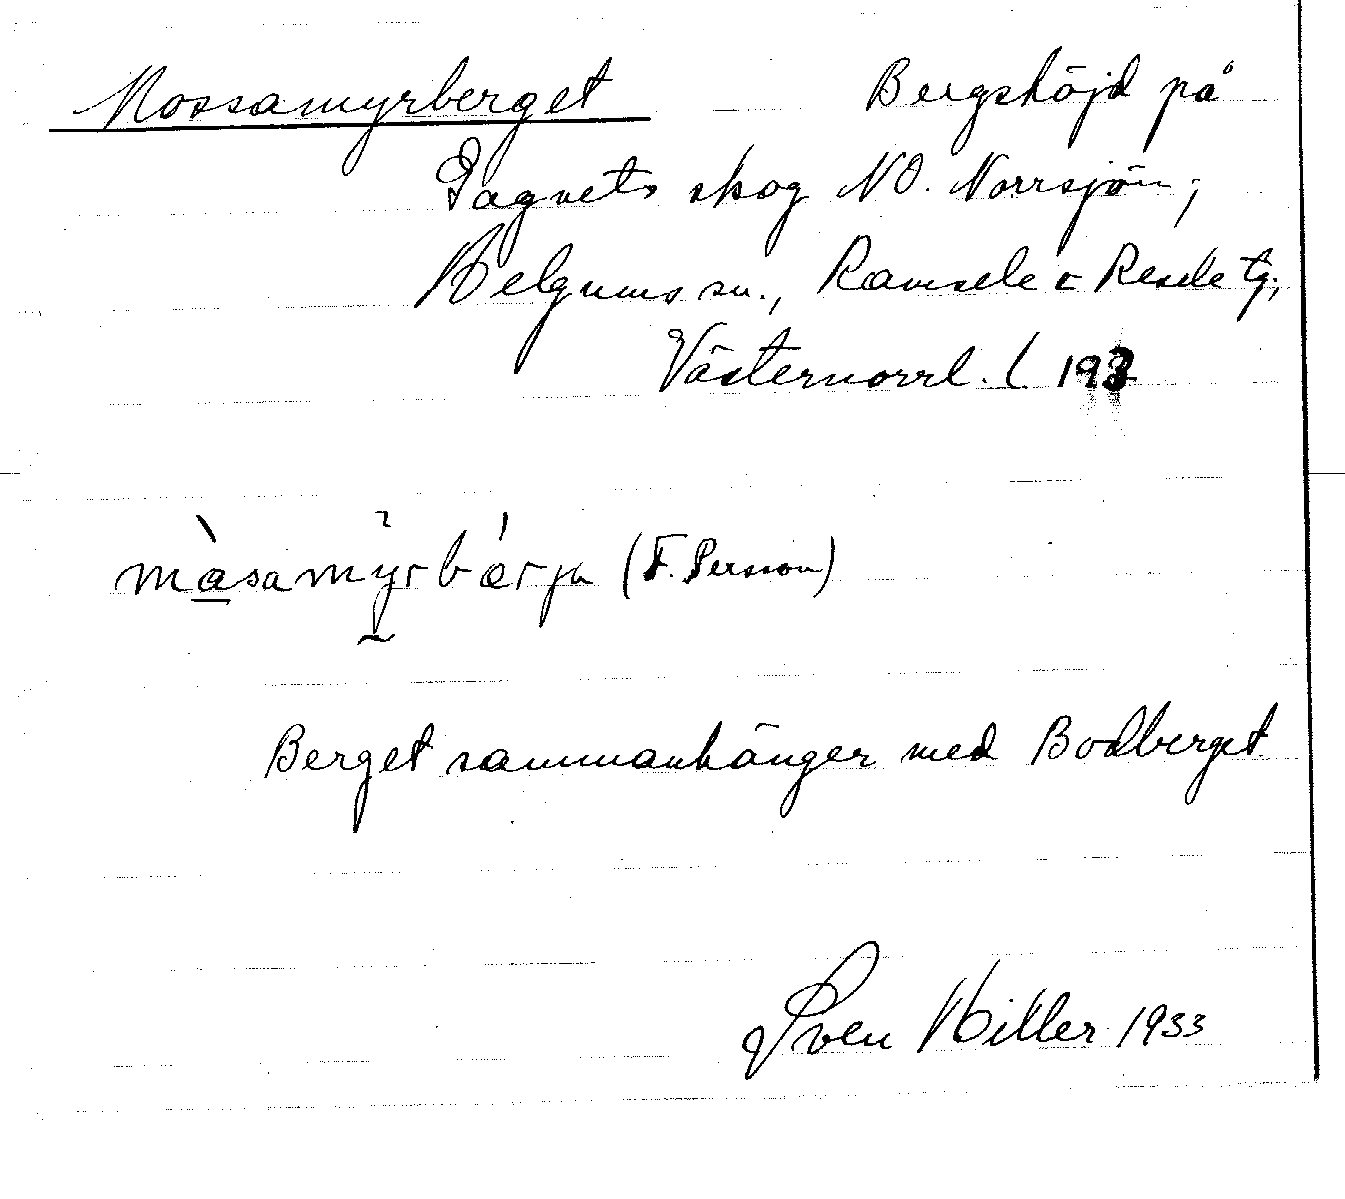 Mossamyrberget Bergshöjd på
Lagnets skog NO. Norrsjön,
Helgums sn., Ramsele o Resele tg.,
Västernorrl. l 193
màsamyrbǽrjʉ (F. Persson)
Berget sammanhänger med Bodberget
Sven Hiller 1933